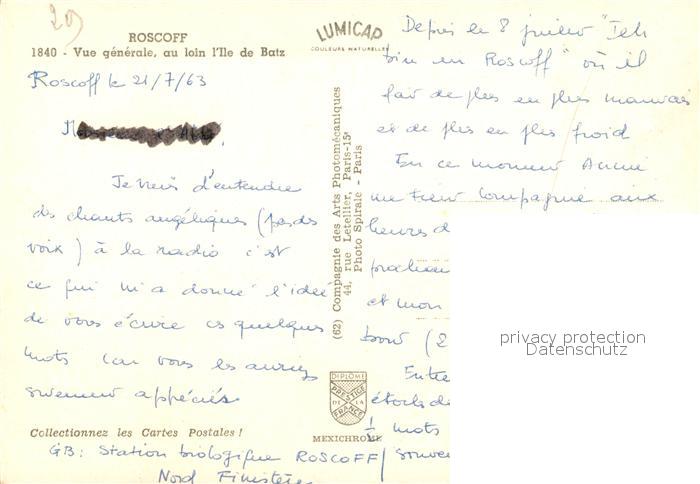 20
ROSCOFF
1840 - Vue générale, au loin l'Ile de Batz
LUMICAP
COULEURS NATURELLES
Roscoff le 21/7/63
Je viens d'entendre
des chants angéliques (pas des
voix) à la radio c'est
ce qui m'a donné l'idée
de vous écrire ces quelques
mots car vous les auriez
sûrement appréciés
Collectionnez les Cartes Postales !
GB: Station biologique ROSCOFF
Nord Finistère
(62) Compagnie des Arts Photomécaniques
44, rue Letellier, Paris-15e
Photo Spirale - Paris
DIPLOME
PRESTIGE
DE LA
FRANCE
MEXICHROME
Depuis le 8 juillet "Ich
bin in Roscoff" où il
fait de plus en plus mauvais
et de plus en plus froid
En ce moment
me tient compagnie aux
heures d
et mon
(2
Entre
étoils de
1/2 mots
privacy protection
Datenschutz